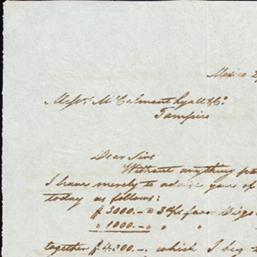 Mexico 2
Messrs McCalmont Lyall & Co.
Tampico
Dear Sirs
Without anything
I have merely to advise you of
today as follows:
$ 3000.- favor Diego
" 1000.- " "
together $ 4.300.- which I beg